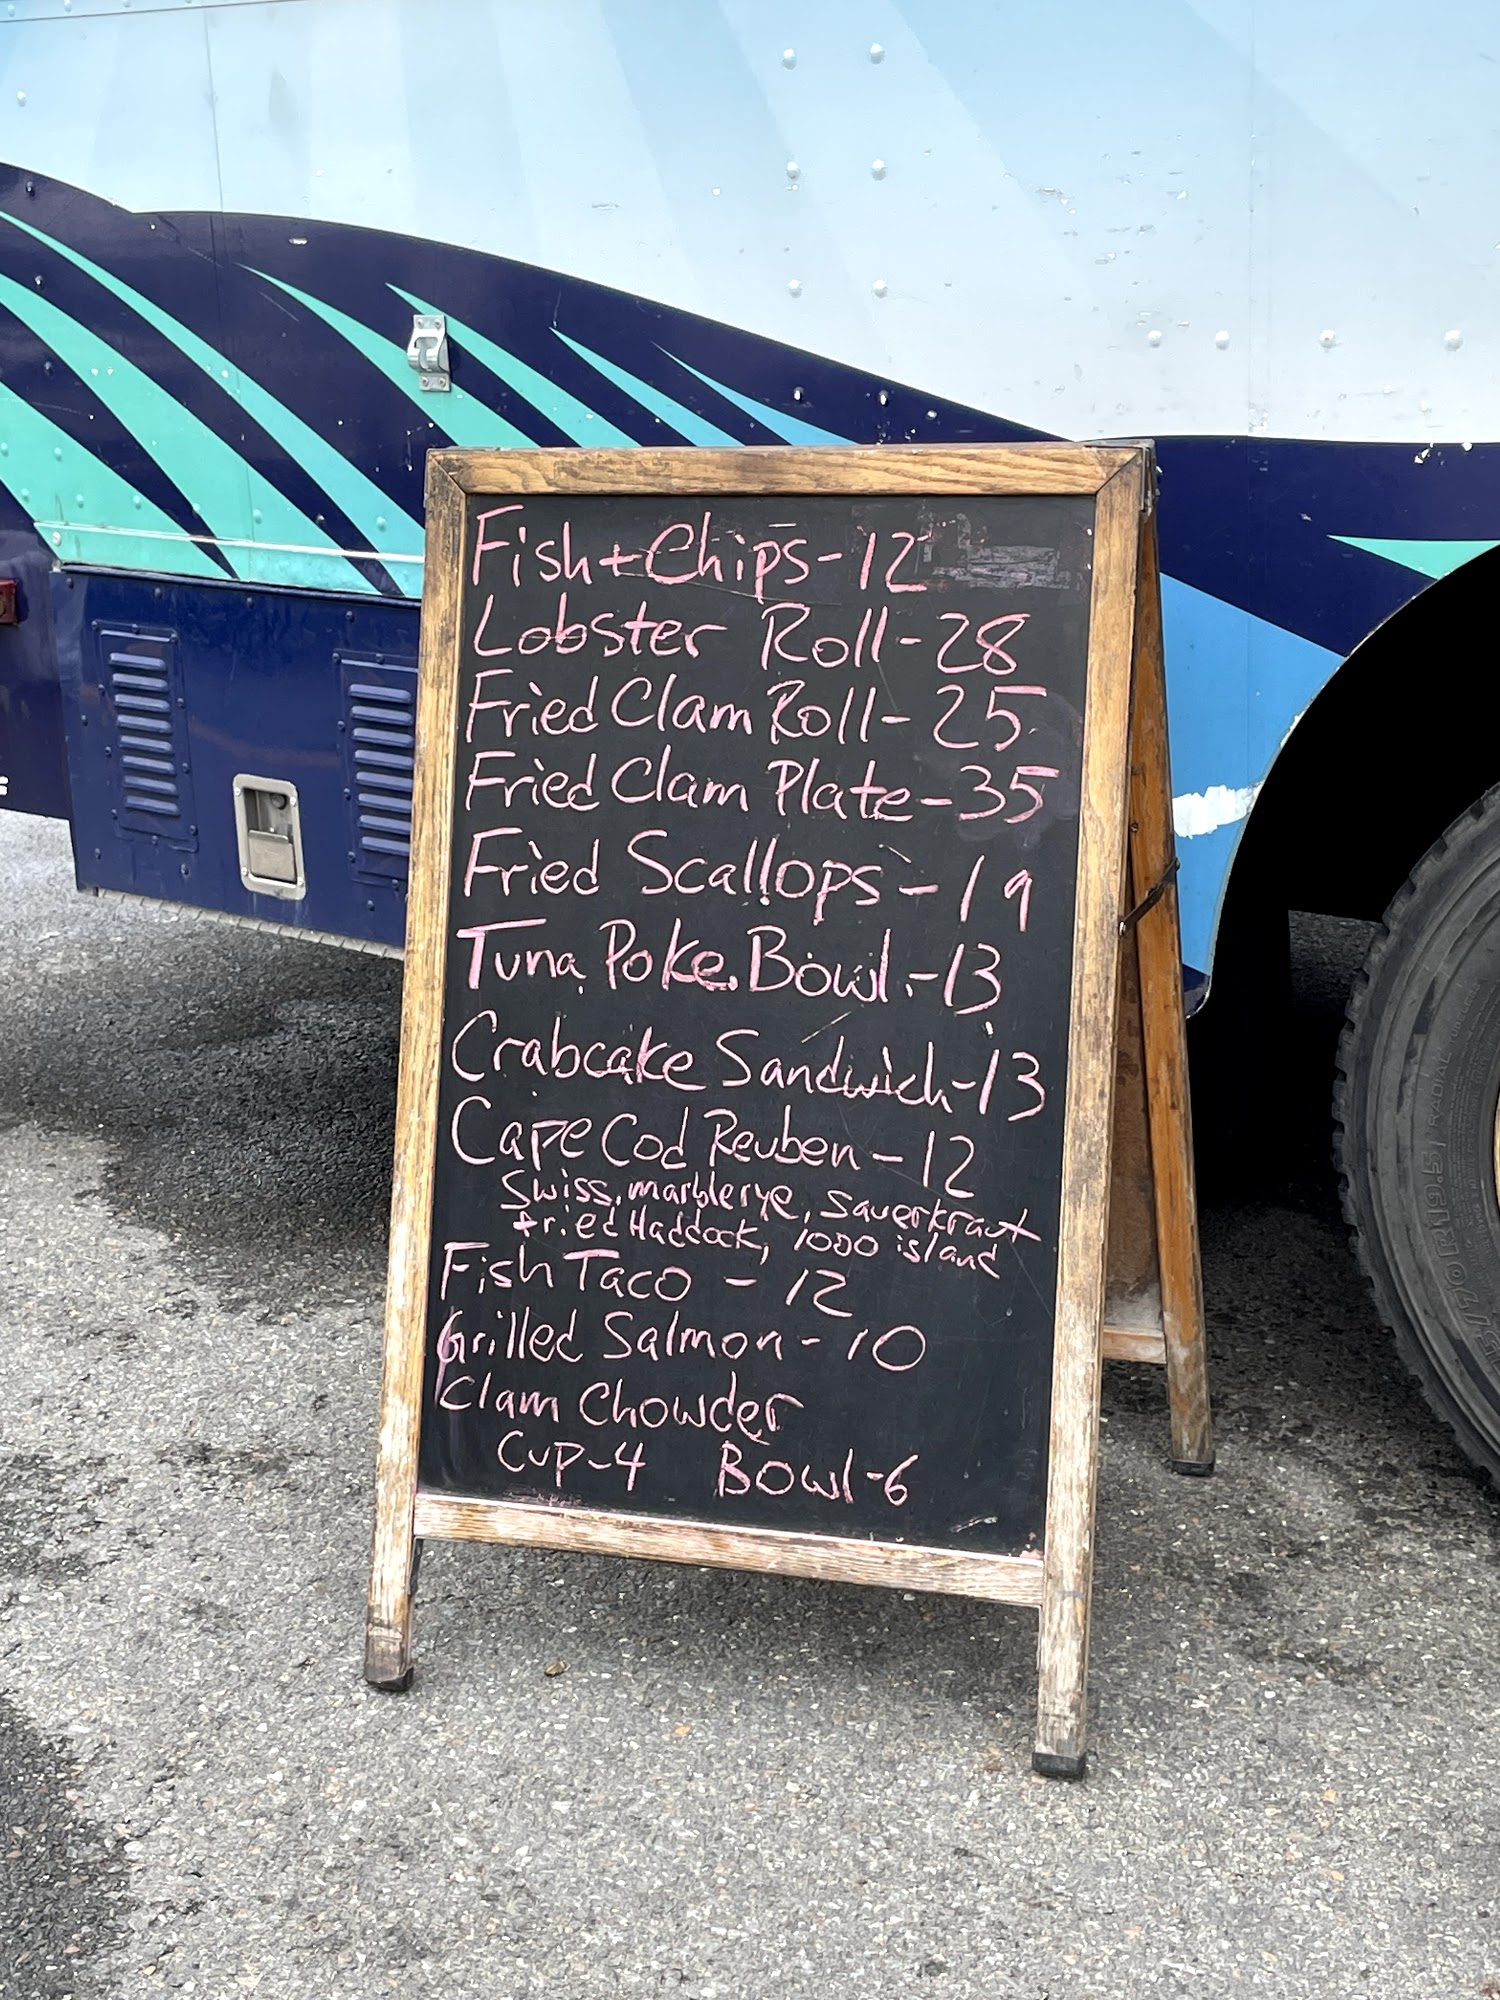 Fish + Chips - 12
Lobster Roll - 28
Fried Clam Roll - 25
Fried Clam Plate - 35
Fried Scallops - 19
Tuna Poke Bowl - 13
Crabcake Sandwich - 13
Cape Cod Reuben - 12
Swiss, marble rye, sauerkraut
fried Haddock, 1000 island
Fish Taco - 12
Grilled Salmon - 10
Clam Chowder
Cup - 4 Bowl - 6